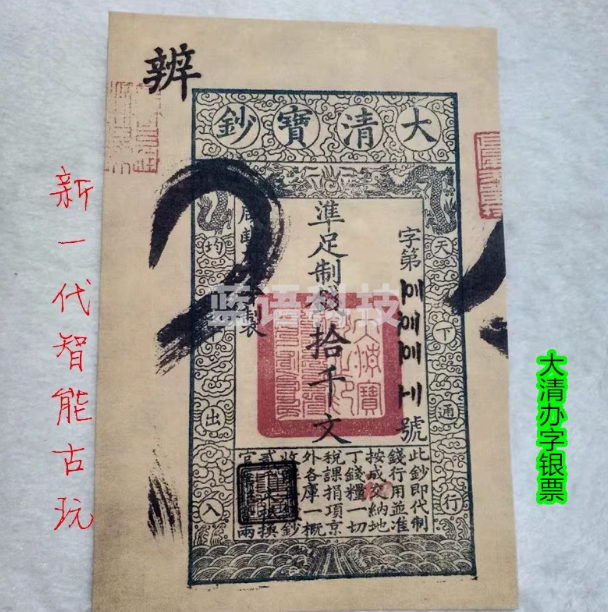 辨
大清寶鈔
天下通行
均
出入
字第
號
準足制錢拾千文
製
此鈔即代制
錢行用並准
按成交納地
丁錢糧一切
稅課捐項京
外各庫一概
新一代智能古玩
大清办字银票
蓝语科技